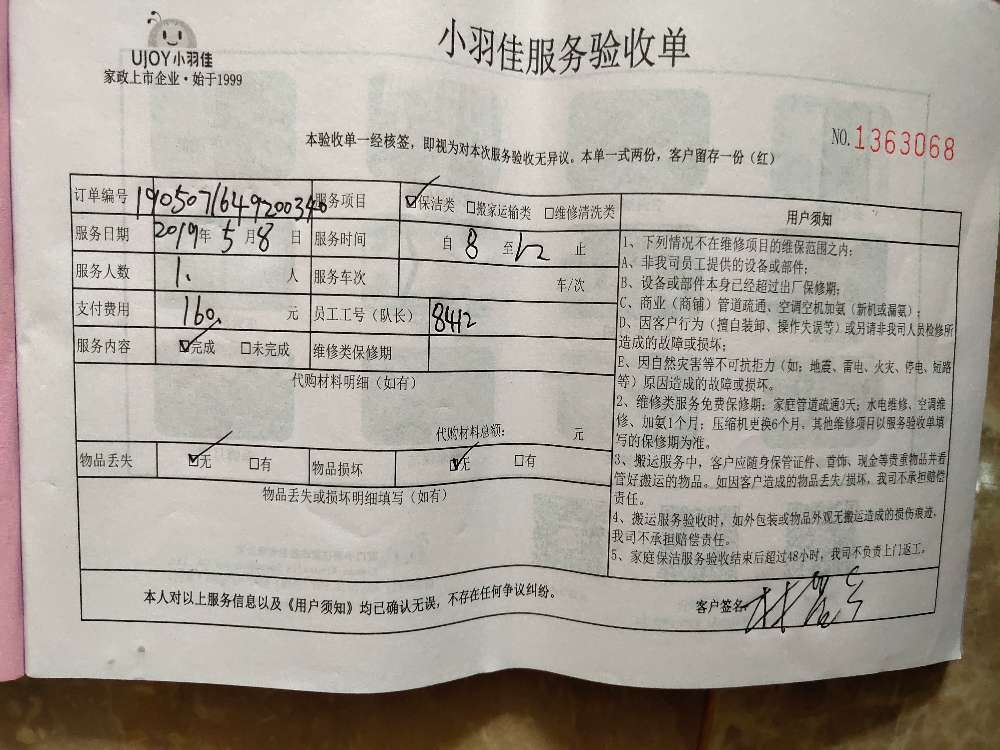 UJOY小羽佳
家政上市企业·始于1999
小羽佳服务验收单
本验收单一经核签，即视为对本次服务验收无异议。本单一式两份，客户留存一份（红）
NO.1363068
订单编号 服务项目 ☑保洁类 □搬家运输类 □维修清洗类
服务日期 2019年 5月8日 服务时间 自 8 至 12 止
服务人数 1. 人 服务车次 车/次
支付费用 160 元 员工工号（队长） 8412
服务内容 ☑完成 □未完成 维修类保修期
代购材料明细（如有）
代购材料总额： 元
物品丢失 ☑无 □有 物品损坏 ☑无 □有
物品丢失或损坏明细填写（如有）
用户须知
1、下列情况不在维修项目的维保范围之内：
A、非我司员工提供的设备或部件；
B、设备或部件本身已经超过出厂保修期；
C、商业（商铺）管道疏通、空调空机加氨（新机或漏氨）；
D、因客户行为（擅自装卸、操作失误等）或另请非我司人员检修所
造成的故障或损坏；
E、因自然灾害等不可抗拒力（如：地震、雷电、火灾、停电、短路
等）原因造成的故障或损坏。
2、维修类服务免费保修期：家庭管道疏通3天；水电维修、空调维
修、加氨1个月；压缩机更换6个月，其他维修项目以服务验收单填
写的保修期为准。
3、搬运服务中，客户应随身保管证件、首饰、现金等贵重物品并看
管好搬运的物品。如因客户造成的物品丢失/损坏，我司不承担赔偿
责任。
4、搬运服务验收时，如外包装或物品外观无搬运造成的损伤痕迹，
我司不承担赔偿责任。
5、家庭保洁服务验收结束后超过48小时，我司不负责上门返工。
本人对以上服务信息以及《用户须知》均已确认无误，不存在任何争议纠纷。
客户签名：